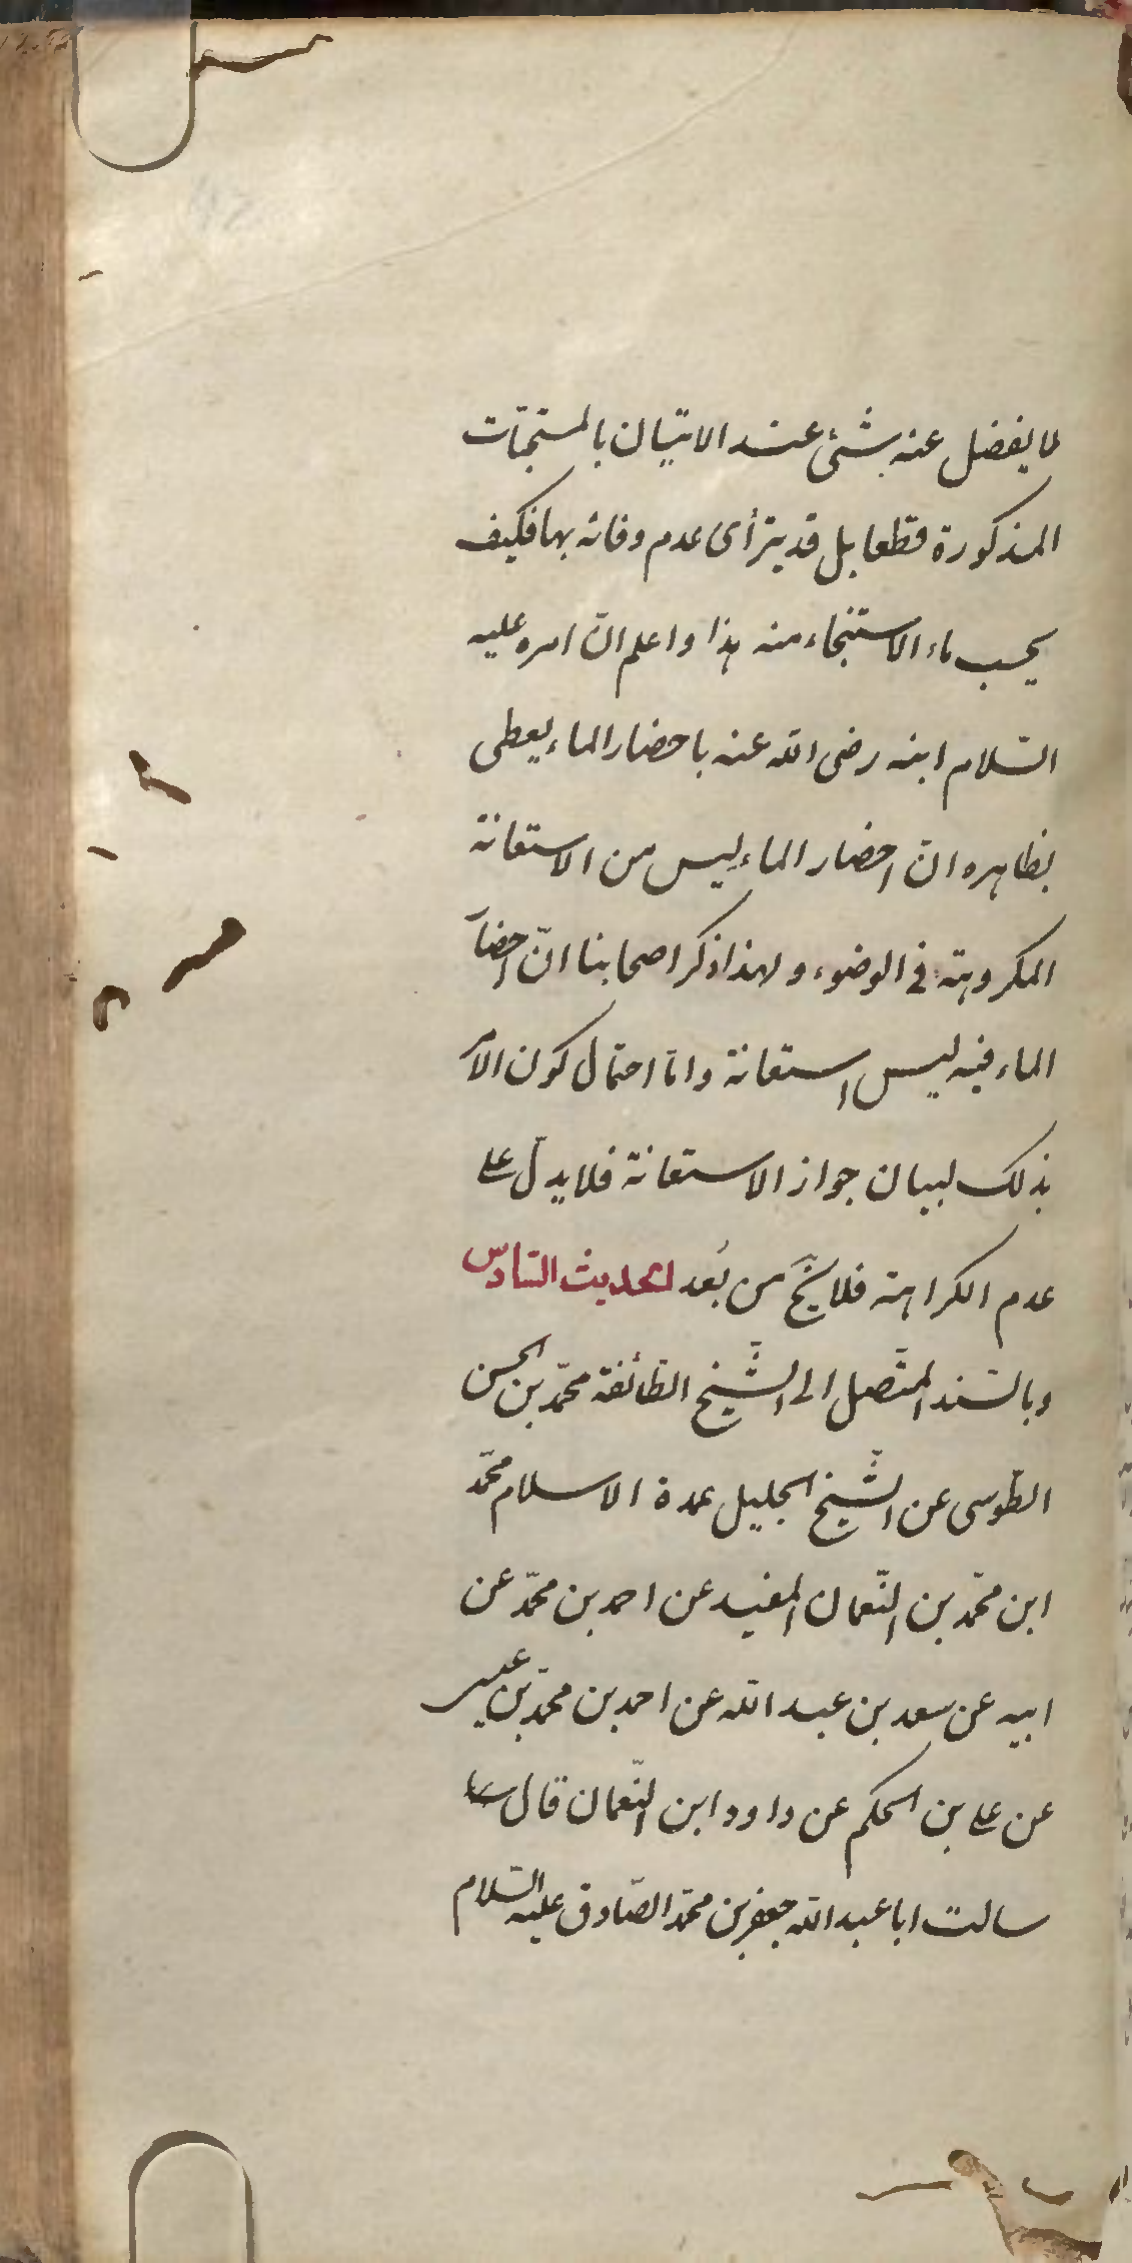 لا يفضل عنه بشئ عند الاتيان بالمستحبّات
المذكورة قطعا بل قد يترأى عدم وفائه بها فكيف
يحسب ماء الاستنجاء منه هذا واعلم انّ امره عليه
السّلام ابنه رضى الله عنه باحضار الماء يعطى
بظاهره انّ احضار الماء ليس من الاستعانة
المكروهة فى الوضوء ولهذا ذكر اصحابنا انّ احضار
الماء فيه ليس استعانة وامّا احتمال كون الامر
بذلك لبيان جواز الاستعانة فلا يدلّ على
عدم الكراهة فلا يخ من بُعد الحديث السّادس
وبالسّند المتّصل الى الشّيخ الطّائفة محمّد بن الحسن
الطّوسى عن الشّيخ الجليل عمدة الاسلام محمّد
ابن محمّد بن النّعمان المفيد عن احمد بن محمّد عن
ابيه عن سعد بن عبد الله عن احمد بن محمّد بن عيسى
عن على بن الحكم عن داود ابن النّعمان قال
سالت ابا عبد الله جعفر بن محمّد الصّادق عليه السّلام